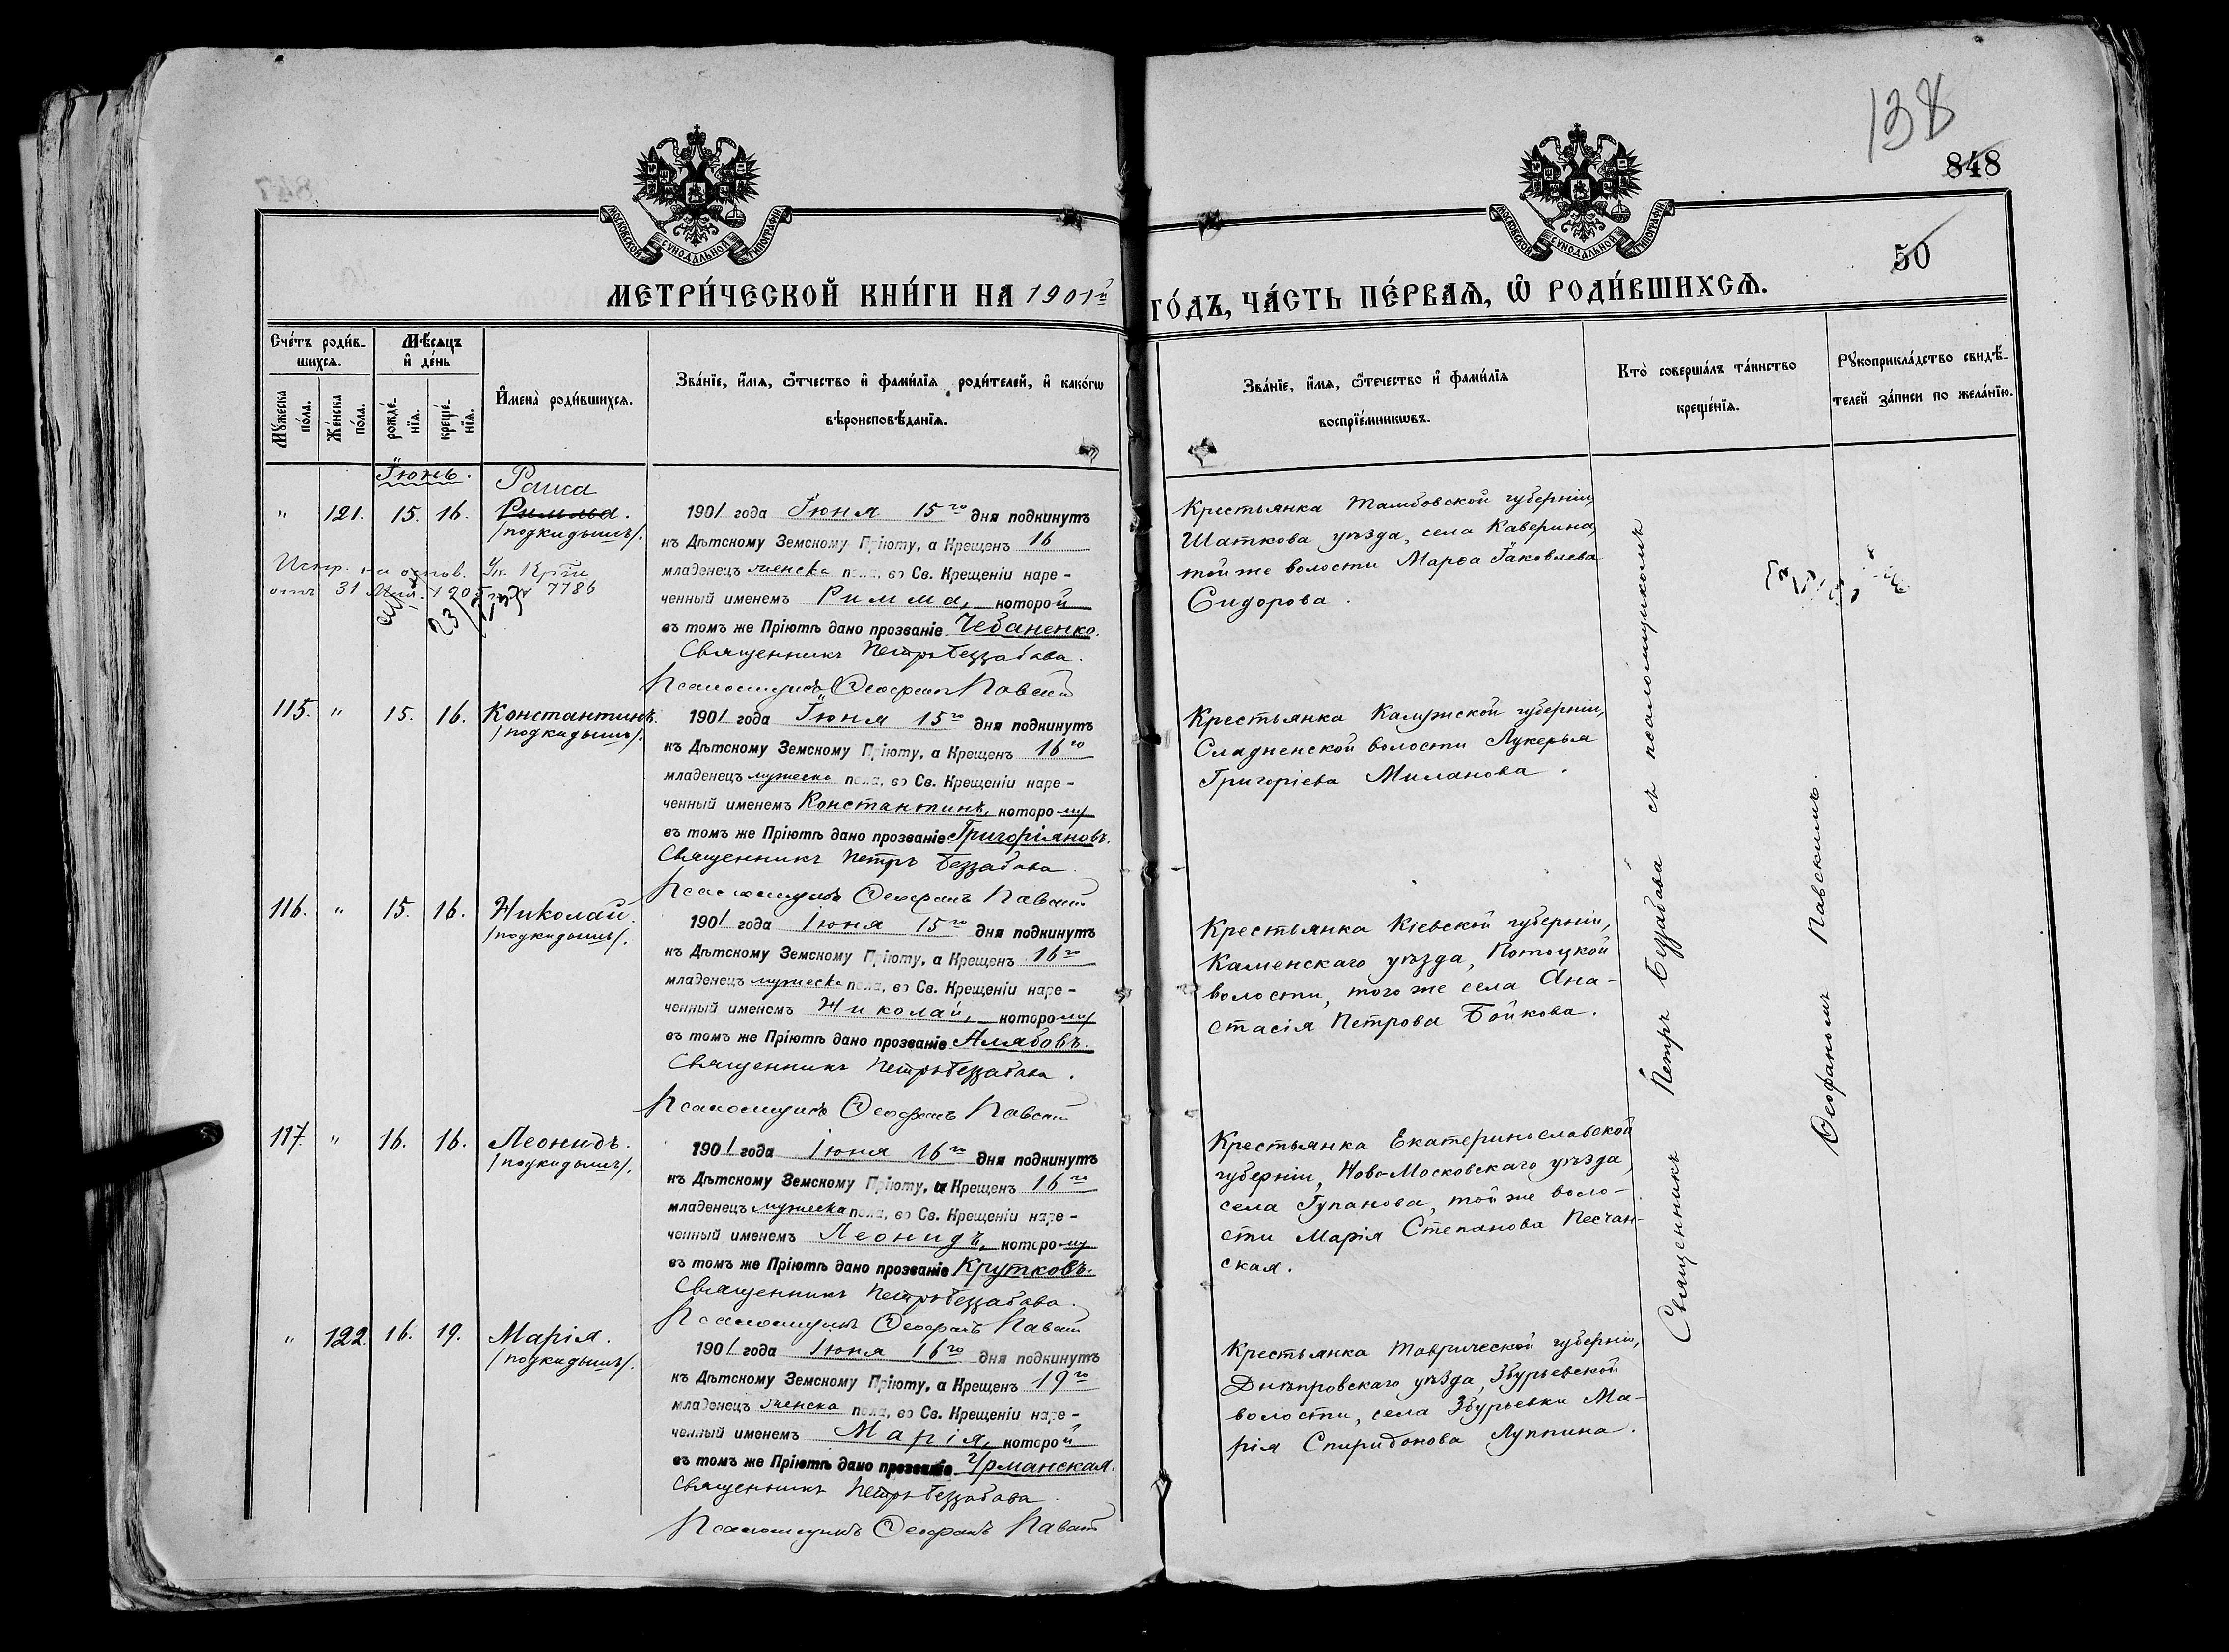 138
848
50
МОСКОВСКОЙ СУНОДАЛЬНОЙ ТИПОГРАФІИ
МОСКОВСКОЙ СУНОДАЛЬНОЙ ТИПОГРАФІИ
МЕТРИ́ЧЕСКОЙ КНИ́ГИ НА 1901й
ГО́ДЪ, ЧА́СТЬ ПЕ́РВАЯ, Ѡ РОДИ́ВШИХСЯ.
Сче́тъ роди́в-
шихся.
Мꙋжеска по́ла.
Же́нска по́ла.
Мѣ́сяцъ
и҆ де́нь
рожде́-
нїя.
креще́-
нїя.
И҆мена̀ роди́вшихся.
Зва́нїе, и҆́мя, ѻ҆́тчество и҆ фами́лїя роди́телей, и҆ како́гѡ
вѣроисповѣ́данїя.
Зва́нїе, и҆́мя, ѻ҆́течество и҆ фами́лїя
воспрїе́мникѡвъ.
Кто̀ соверша́лъ та́инство
креще́нїя.
Рꙋкоприкла́дство свидѣ́-
телей за́писи по жела́нїю.
Іюнь.
" 121. 15. 16.
Раиса
Римма.
/подкидышъ/.
Испр. на основ. Ук. Крти
отъ 31 Мая 1905 г. № 7786
1901 года Іюня 15го дня подкинутъ
къ Дѣтскому Земскому Пріюту, а Крещен 16
младенецъ женска пола, во Св. Крещеніи наре-
ченный именемъ Римма, которой
въ томъ же Пріютѣ дано прозваніе Чебаненко.
Священникъ Петръ Беззабава.
Псаломщикъ Ѳеофанъ Павскій
Крестьянка Тамбовской губерніи,
Шаткова уѣзда, села Каверина,
той же волости Марѳа Іаковлева
Сидорова.
115. " 15. 16. Константинъ.
/подкидышъ/.
1901 года Іюня 15го дня подкинутъ
къ Дѣтскому Земскому Пріюту, а Крещенъ 16го
младенецъ мужеска пола, во Св. Крещеніи наре-
ченный именемъ Константинъ, которому
въ томъ же Пріютѣ дано прозваніе Григоріяновъ.
Священникъ Петръ Беззабава
Псаломщикъ Ѳеофанъ Павскій
Крестьянка Калужской губерніи,
Сладненской волости Лукерья
Григоріева Миланова.
116. " 15. 16. Николай.
/подкидышъ/.
1901 года Іюня 15го дня подкинутъ
къ Дѣтскому Земскому Пріюту, а Крещенъ 16го
младенецъ мужеска пола, во Св. Крещеніи наре-
ченный именемъ Николай, которому
въ томъ же Пріютѣ дано прозваніе Алябовъ.
Священникъ Петръ Беззабава.
Псаломщикъ Ѳеофанъ Павскій
Крестьянка Кіевской губерніи,
Каменскаго уѣзда, Потоцкой
волости, того же села Ана-
стасія Петрова Бойкова.
117. " 16. 16. Леонидъ.
/подкидышъ/.
1901 года Іюня 16го дня подкинутъ
къ Дѣтскому Земскому Пріюту, а Крещенъ 16го
младенецъ мужеска пола, во Св. Крещеніи наре-
ченный именемъ Леонидъ, которому
въ томъ же Пріютѣ дано прозваніе Крутковъ.
Священникъ Петръ Беззабава.
Псаломщикъ Ѳеофанъ Павскій
Крестьянка Екатеринославской
губерніи, Ново-Московскаго уѣзда,
села Гупанова, той же воло-
сти Марія Степанова Песчан-
ская.
" 122. 16. 19. Марія.
/подкидышъ/.
1901 года Іюня 16го дня подкинутъ
къ Дѣтскому Земскому Пріюту, а Крещен 19го
младенецъ женска пола, во Св. Крещеніи наре-
ченный именемъ Марія, которой
въ томъ же Пріютѣ дано прозваніе Урманская.
Священникъ Петръ Беззабава.
Псаломщикъ Ѳеофанъ Павскій
Крестьянка Таврической губерніи,
Днѣпровскаго уѣзда, Збурьевской
волости, села Збурьевки Ма-
рія Спиридонова Луппина.
Священникъ Петръ Беззабава съ псаломщикомъ
Ѳеофаномъ Павскимъ.